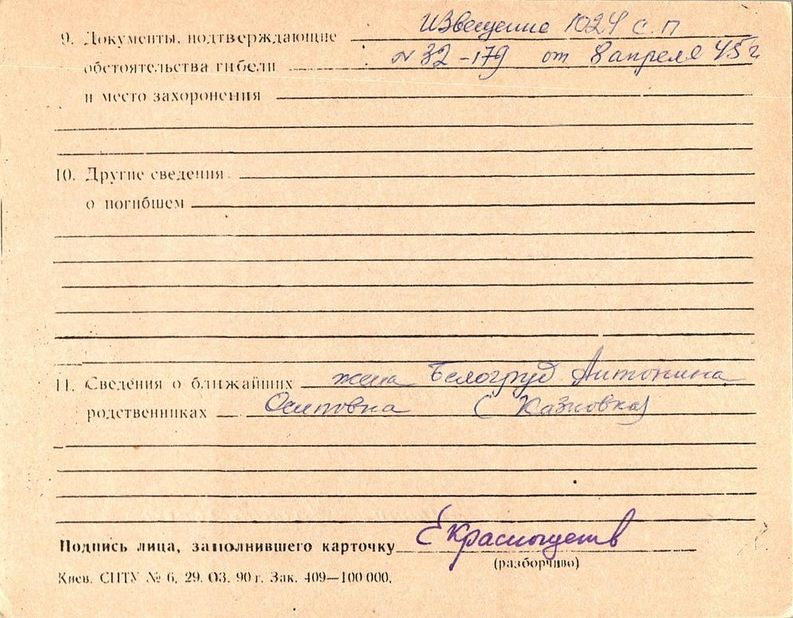 Извещение 1024 с.п
9. Документы, подтверждающие
обстоятельства гибели № 32-179 от 8 апреля 45 г
и место захоронения
10. Другие сведения
о погибшем
11. Сведения о ближайших жена Белогруд Антонина
родственниках Осиповна (с Казновка)
Подпись лица, заполнившего карточку
(разборчиво)
Киев. СПТУ № 6, 29. 03. 90 г. Зак. 409—100 000.